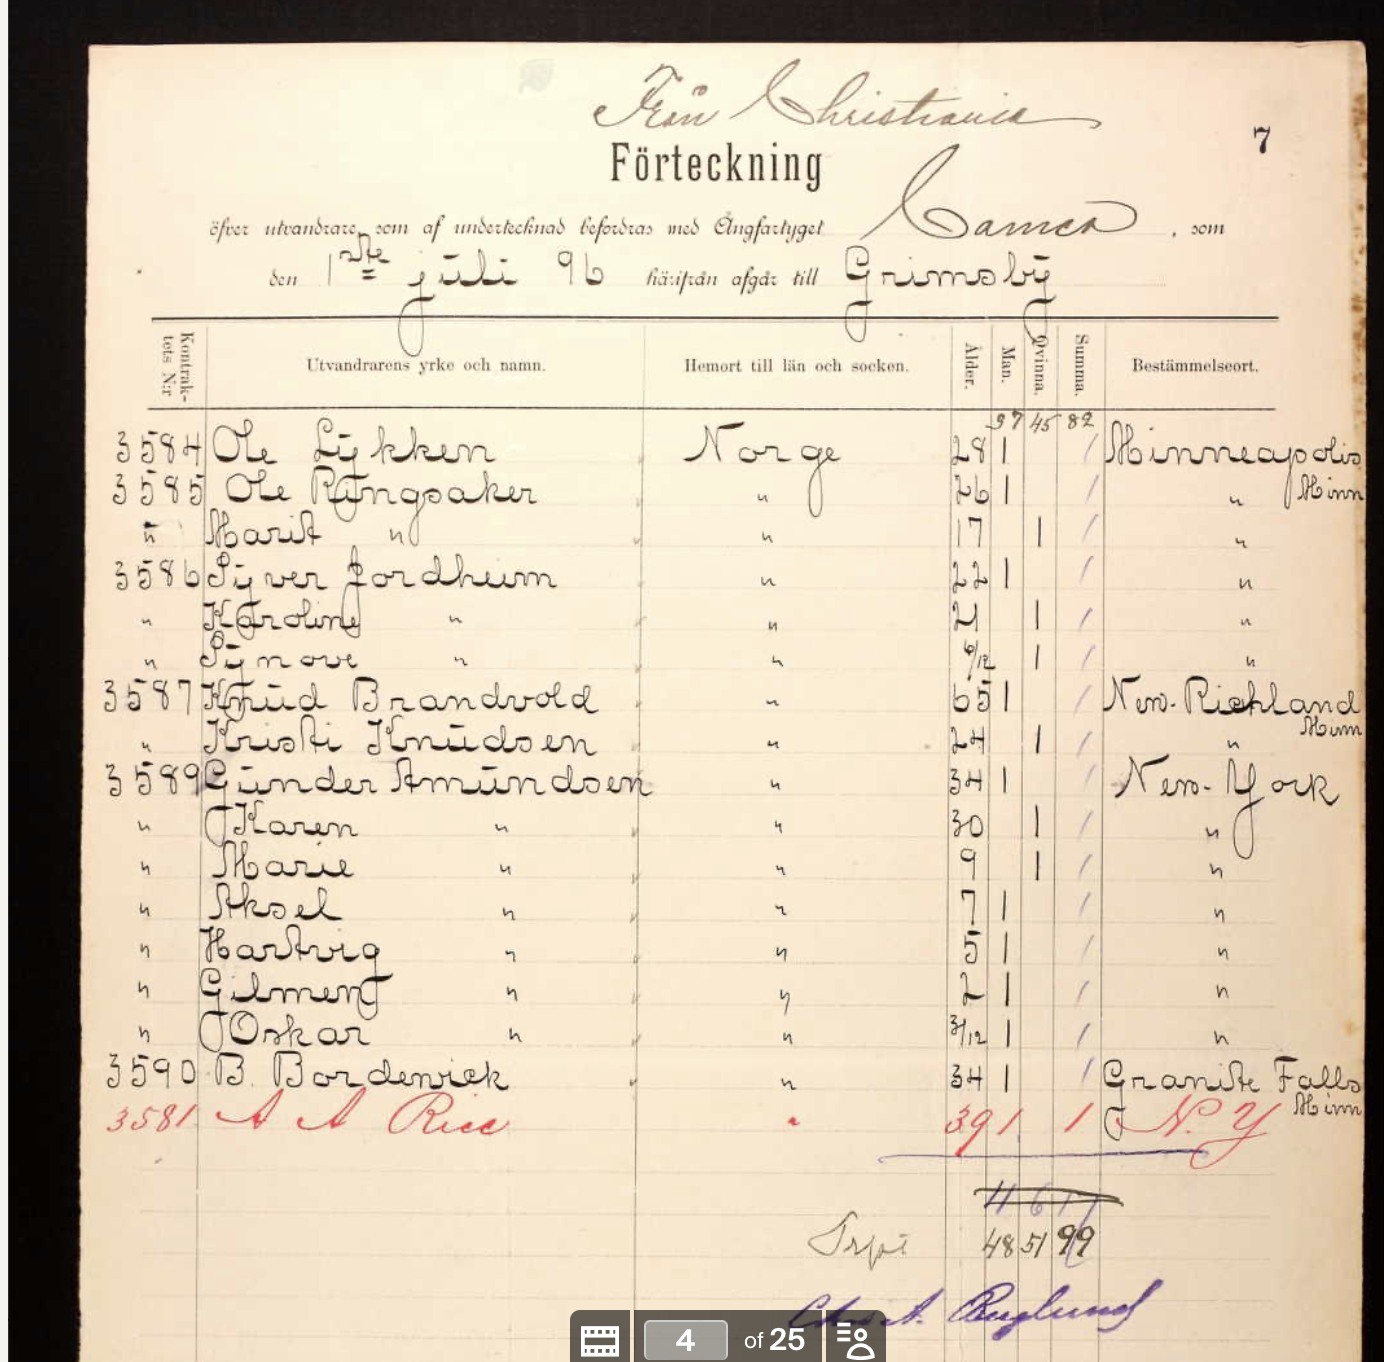 Från Christiania
7
Förteckning
öfver utvandrare, som af undertecknad befordras med Ångfartyget Cameo, som
den 1ste juli 96 härifrån afgår till Grimsby
Kontraktets N:r Utvandrarens yrke och namn. Hemort till län och socken. Ålder. Man. Qvinna. Summa. Bestämmelseort.
37 45 82
3584 Ole Lykken Norge 28 1 / Minneapolis
3585 Ole Ringsaker " 26 1 / " Minn
" Marit " " 17 1 / "
3586 Syver Jordheim " 22 1 / "
" Karoline " " 21 1 / "
" Synove " " 6/12 1 / "
3587 Knud Brandvold " 65 1 / New-Richland
Minn
" Kristi Knudsen " 24 1 / "
3589 Gunder Amundsen " 34 1 / New-York
" Karen " " 30 1 / "
" Marie " " 9 1 / "
" Aksel " " 7 1 / "
" Hartvig " " 5 1 / "
" Gilmen " " 2 1 / "
" Oskar " " 3/12 1 / "
3590 B. Bordewick " 34 1 / Granite Falls
Minn
3581 A A Rice " 39 1 1 N. Y
11 6 17
48 51 99
4 of 25